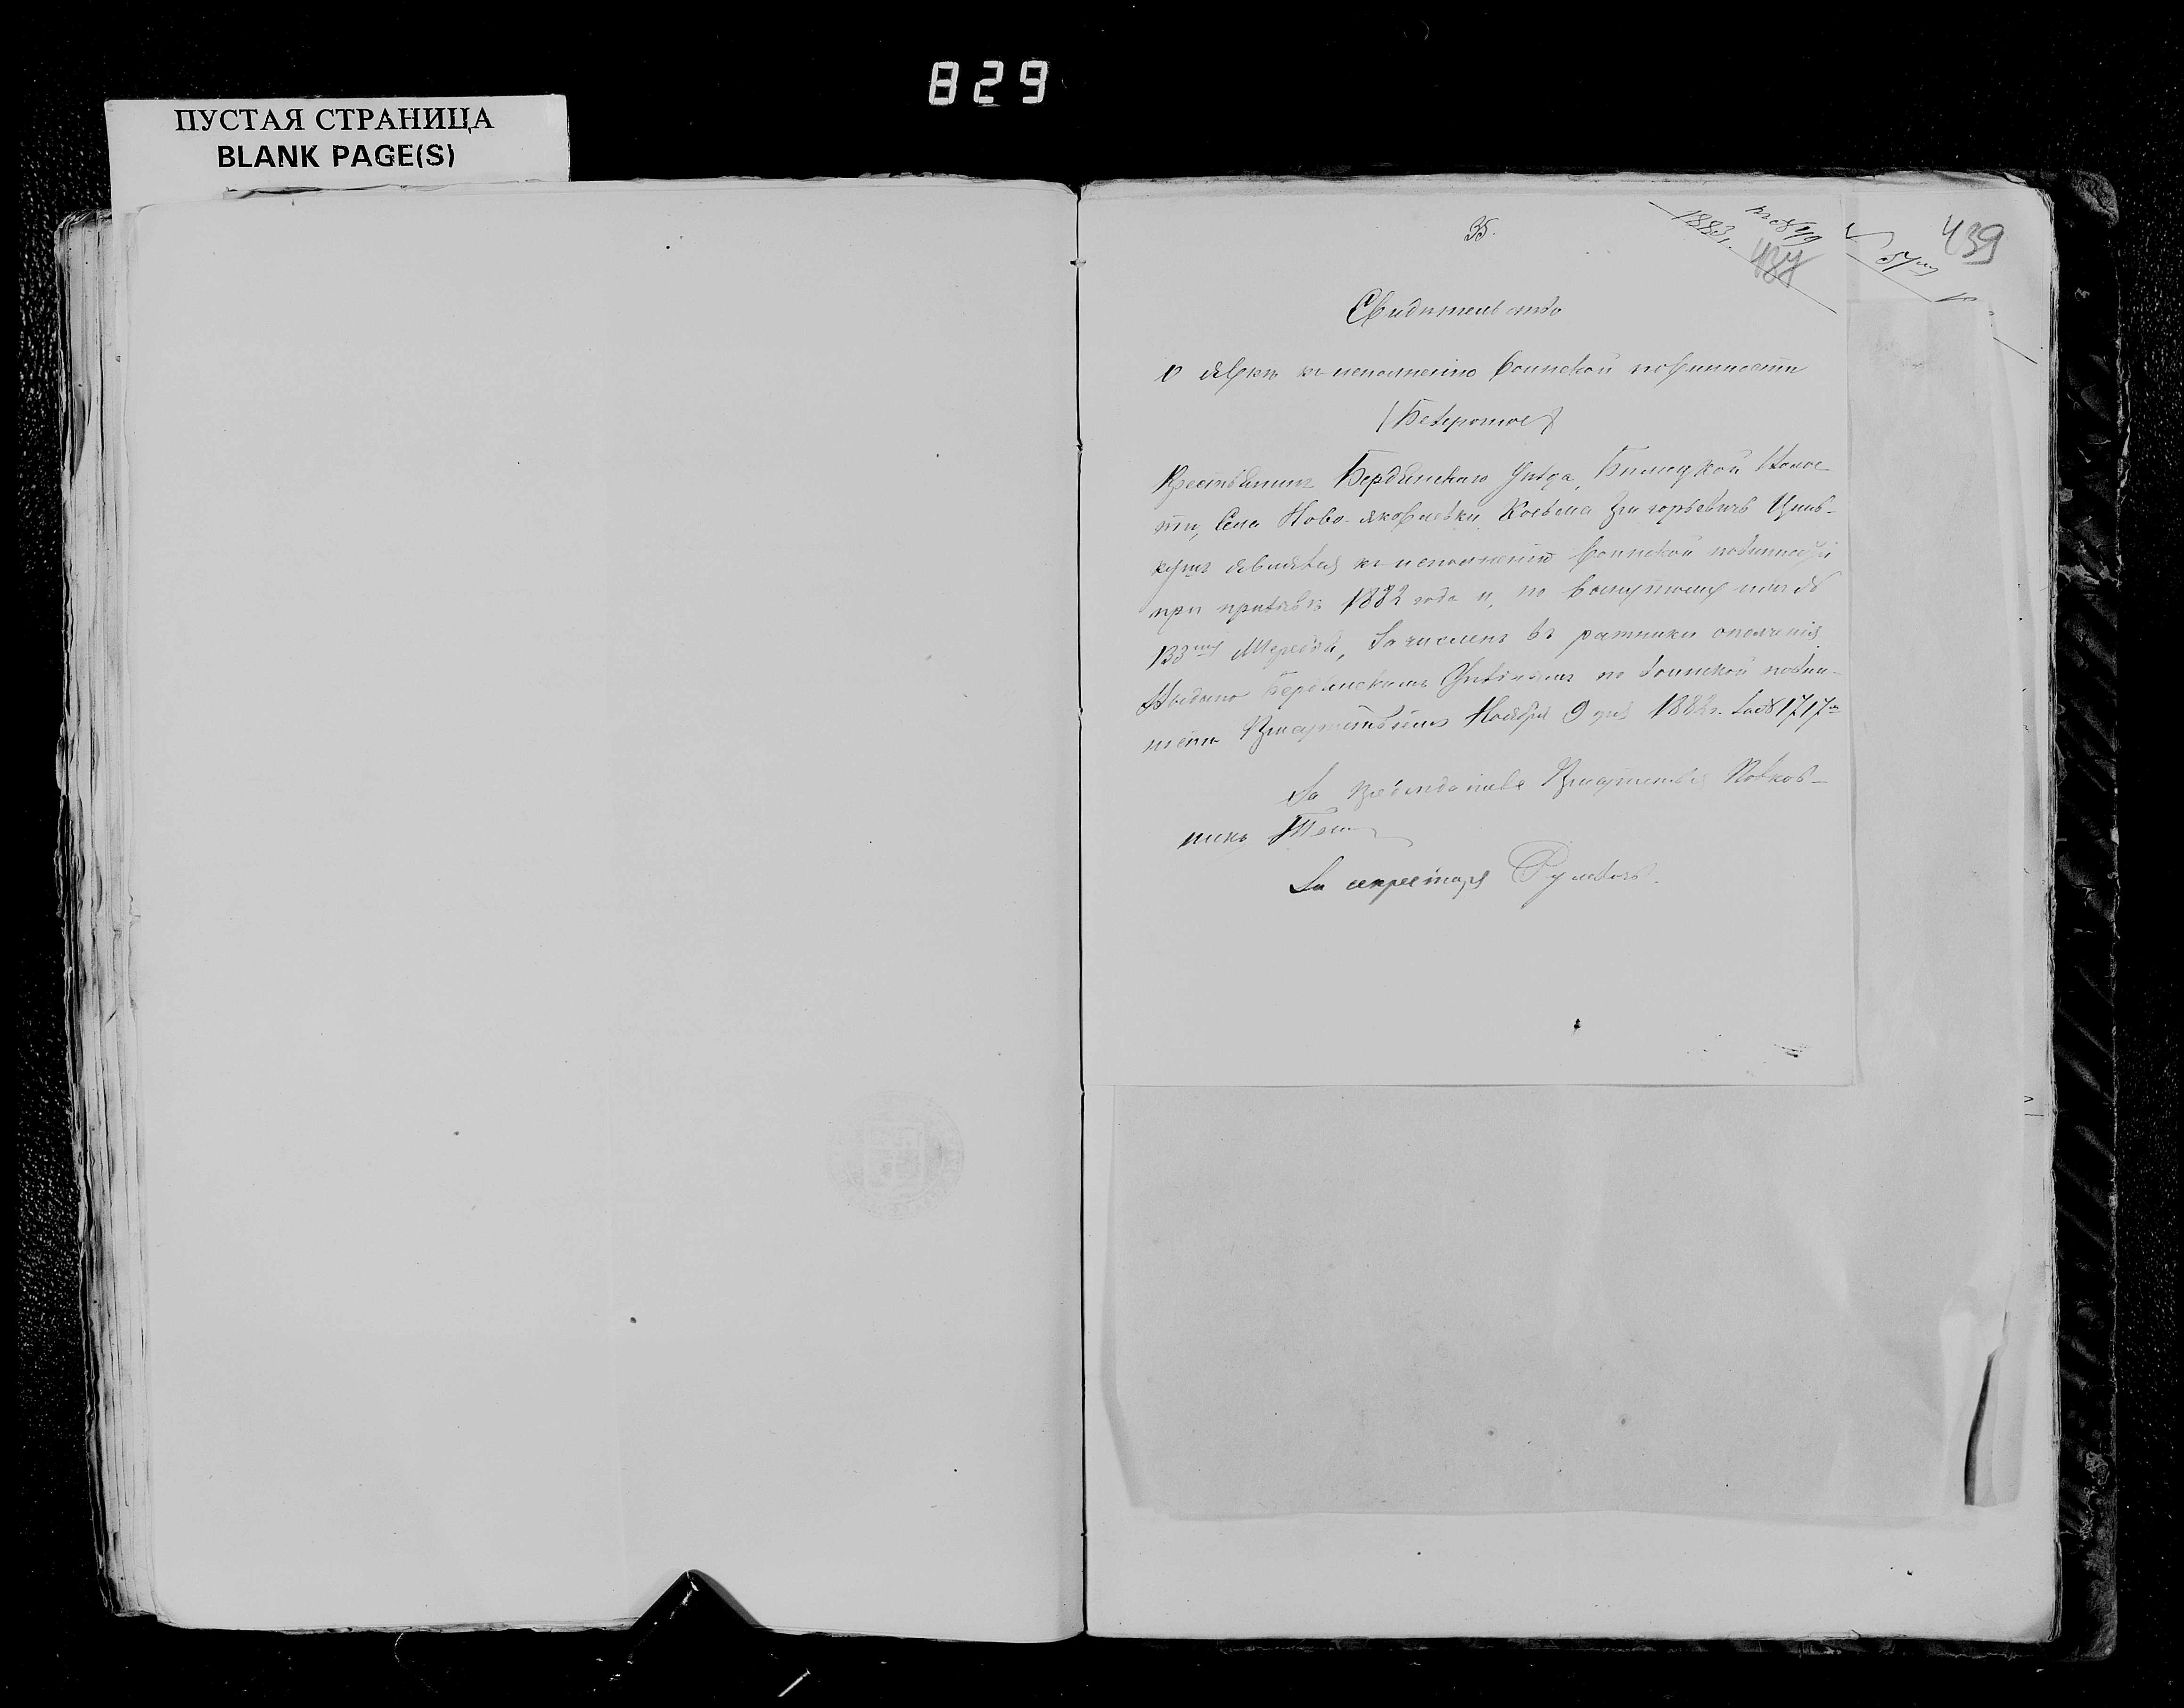 829
ПУСТАЯ СТРАНИЦА
BLANK PAGE(S)
439
35.
1883 г.
437
57
Свидетельство
о явкѣ къ исполненію воинской повинности
(Безсрочное)
Крестьянинъ Бердянскаго Уѣзда, Волос-
ти, Села Ново-Яковлевки, Козьма Григорьевичъ
являлся къ исполненію воинской повинности
при призывѣ 1882 года и, по вынутому имъ №
133му жеребья, зачисленъ въ ратники ополченія
Выдано Бердянскимъ Уѣзднымъ по воинской повин-
ности Присутствіемъ Ноября 9 дня 1882 г. за № 1717
За Предсѣдателя Присутствія Полков-
никъ
За секретаря